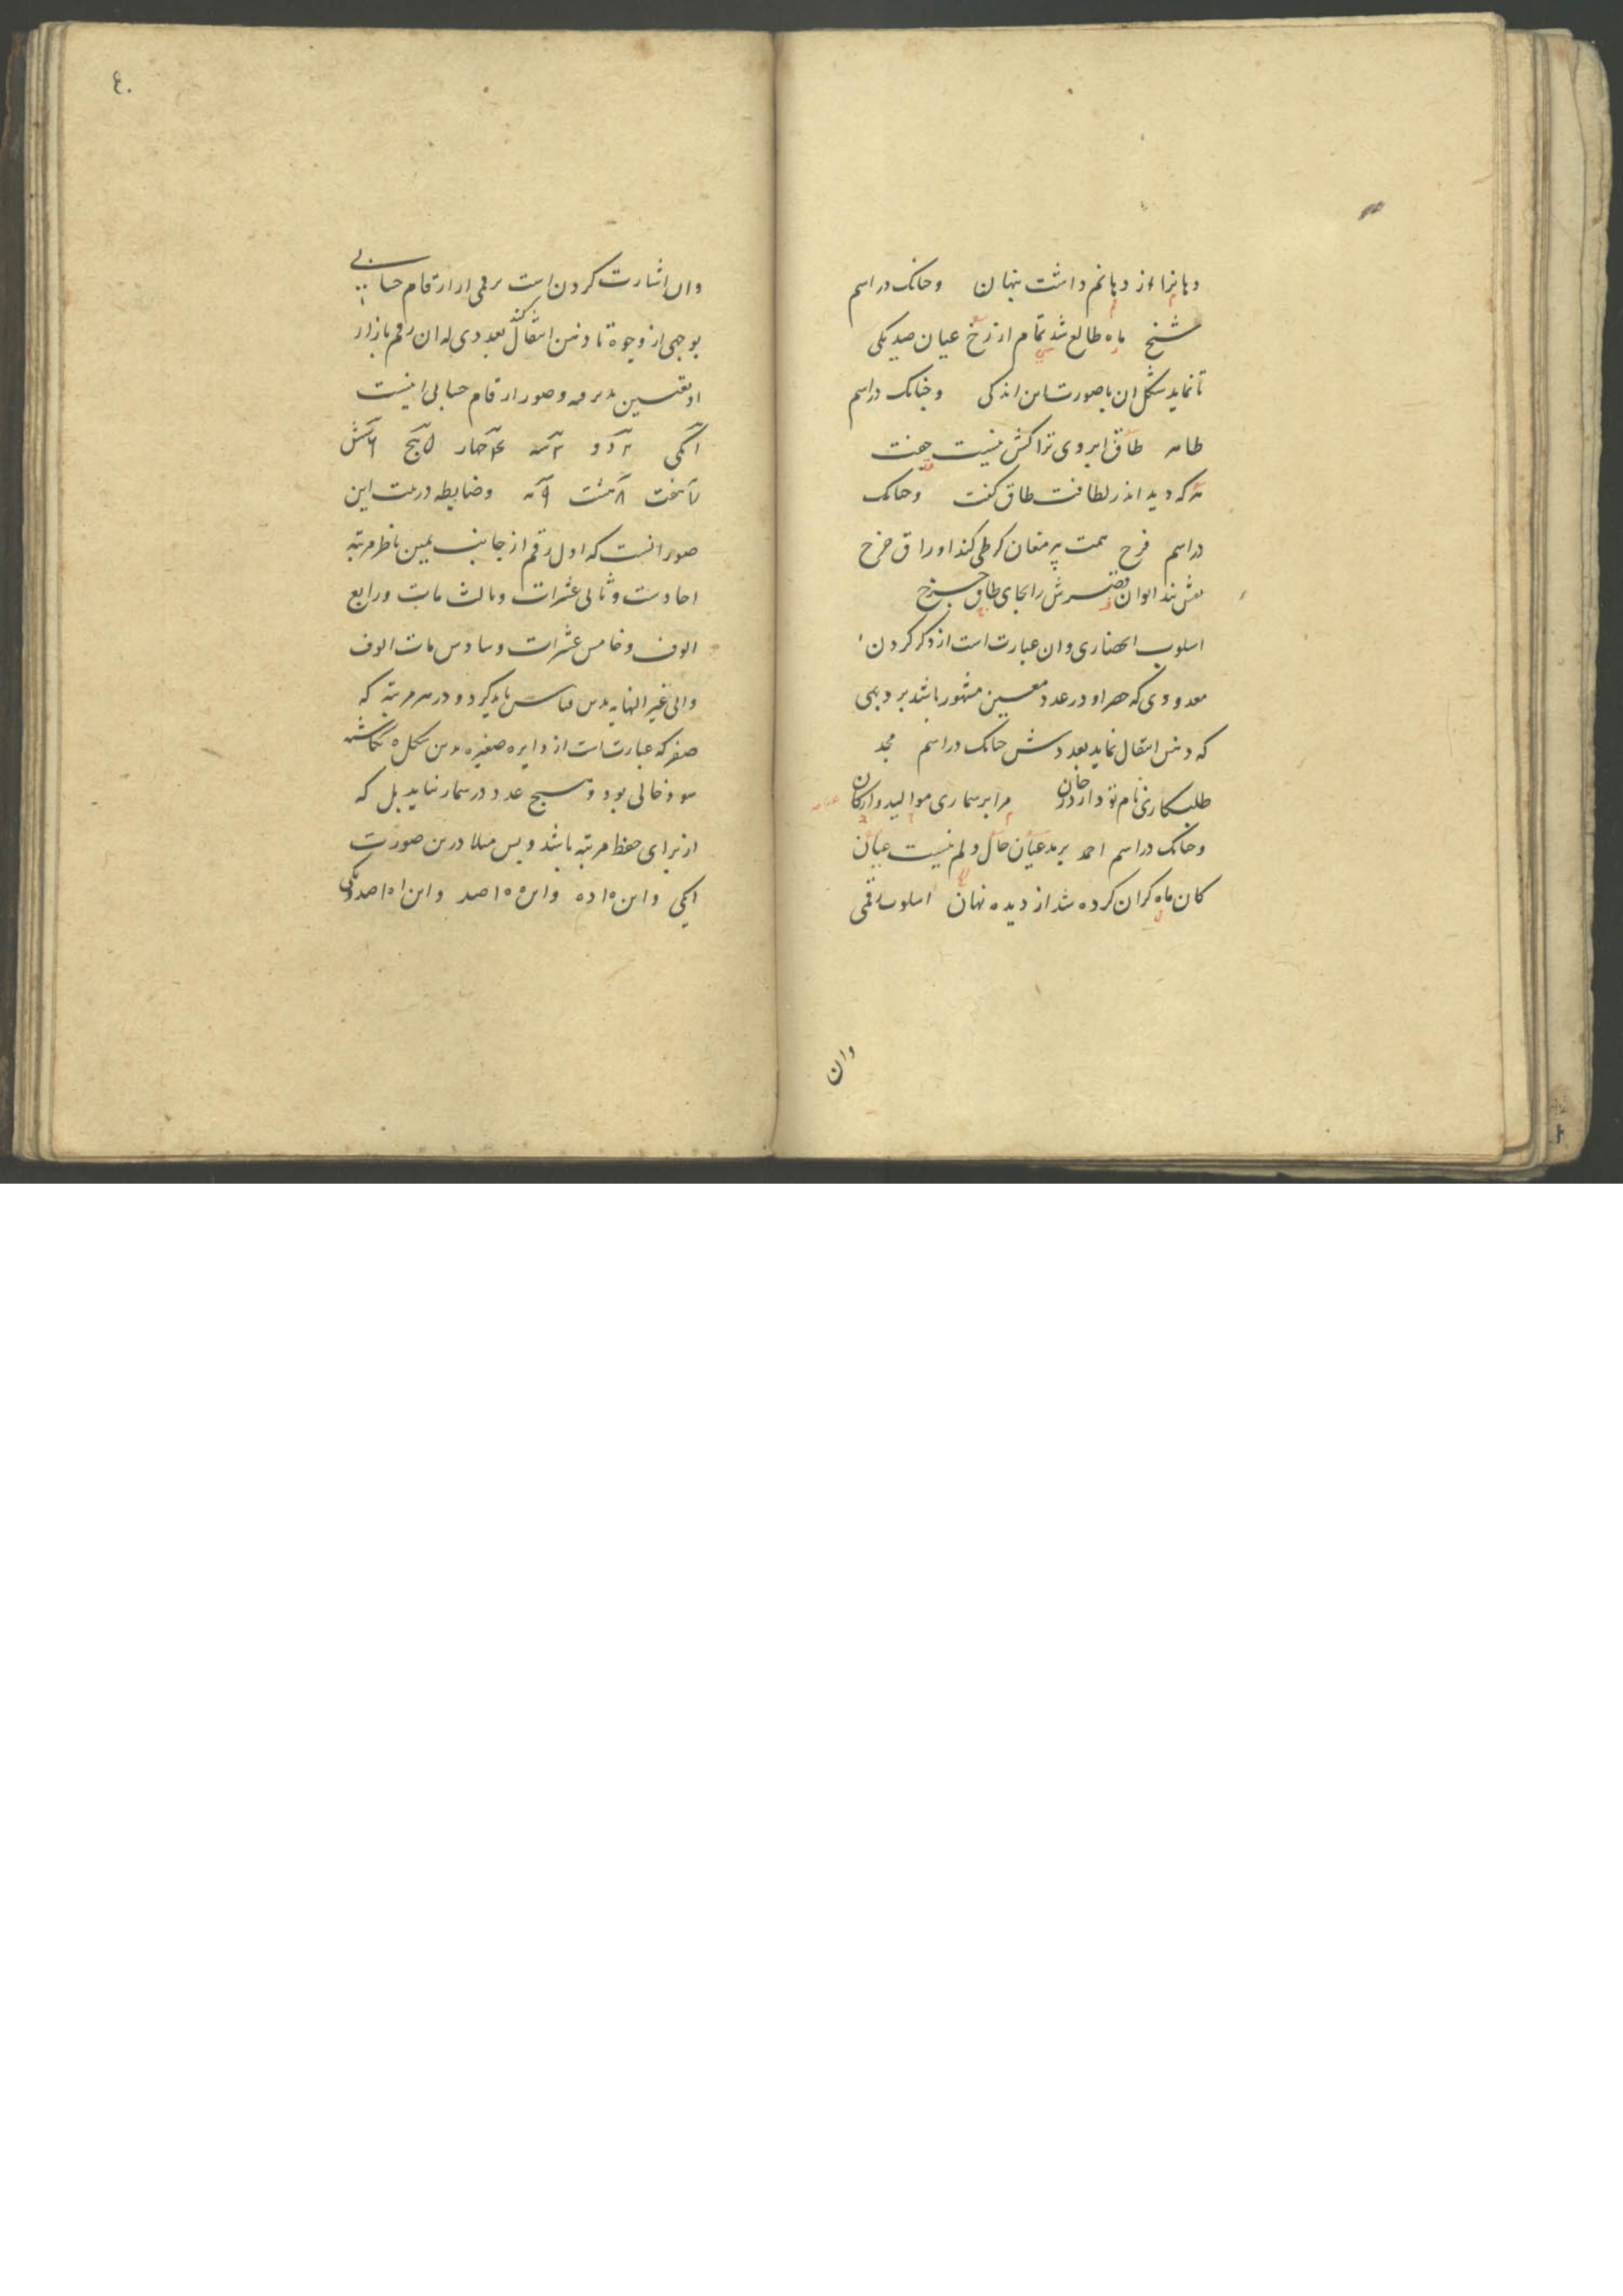 دهانرا از دهانم داشت پنهان وچنانک در اسم
شیخ ماه طالع شد تمام از رخ عیان صد یکی
تا نماید شکل ان با صورتش اندکی و چنانک در اسم
طاهر طاق ابروی تراکش نیست جفت
هر که دید اندر لطافت طاق گفت وچنانک
در اسم فرخ همت پیر مغان کرطی کند اوراق چرخ
نقش بندد ایوان قصرش را بجای طاق چرخ
اسلوب انحصاری وان عبارت است از ذکر کردن
معدودی که حصر او در عدد معین مشهور باشد بر وجهی
که ذهن انتقال نماید بعددش چنانک در اسم مجد
طلبکاری نام تو دارد جان مرا بر شماری موالید وارکان
وچنانک در اسم احمد بر مدعیان حال دلم نیست عیان
کان ماه کران کرده شد از دیده نهان اسلوب رقمی
وان
٤٠
وان اشارت کردن است برقمی از ارقام حسابی
بوجهی از وجوه تا ذهن انتقال کند بعددی که ان رقم بازاء
او تعیین یافته وصور ارقام حسابی اینست
ا یکی ٢ دو ٣ سه ۴ چهار ۵ پنج ٦ شش
٧ هفت ٨ هشت ٩ نه وضابطه در این
صور انست که اول رقم از جانب یمین ناظر مرتبه
احادست وثانی عشرات وثالث مات ورابع
الوف وخامس عشرات وسادس مات الوف
والی غیر النهایه بدین قیاس باید کرد و در هر مرتبه که
صفر که عبارت است از دایره صغیره بدین شکل ه نکاشته
شود خالی بود وهیچ عدد در شمار نیاید بل که
از برای حفظ مرتبه باشد وبس مثلا درین صورت
ا یکی واین ه ا ده واین ه ه ا صد واین ا ه ا صد ویکی